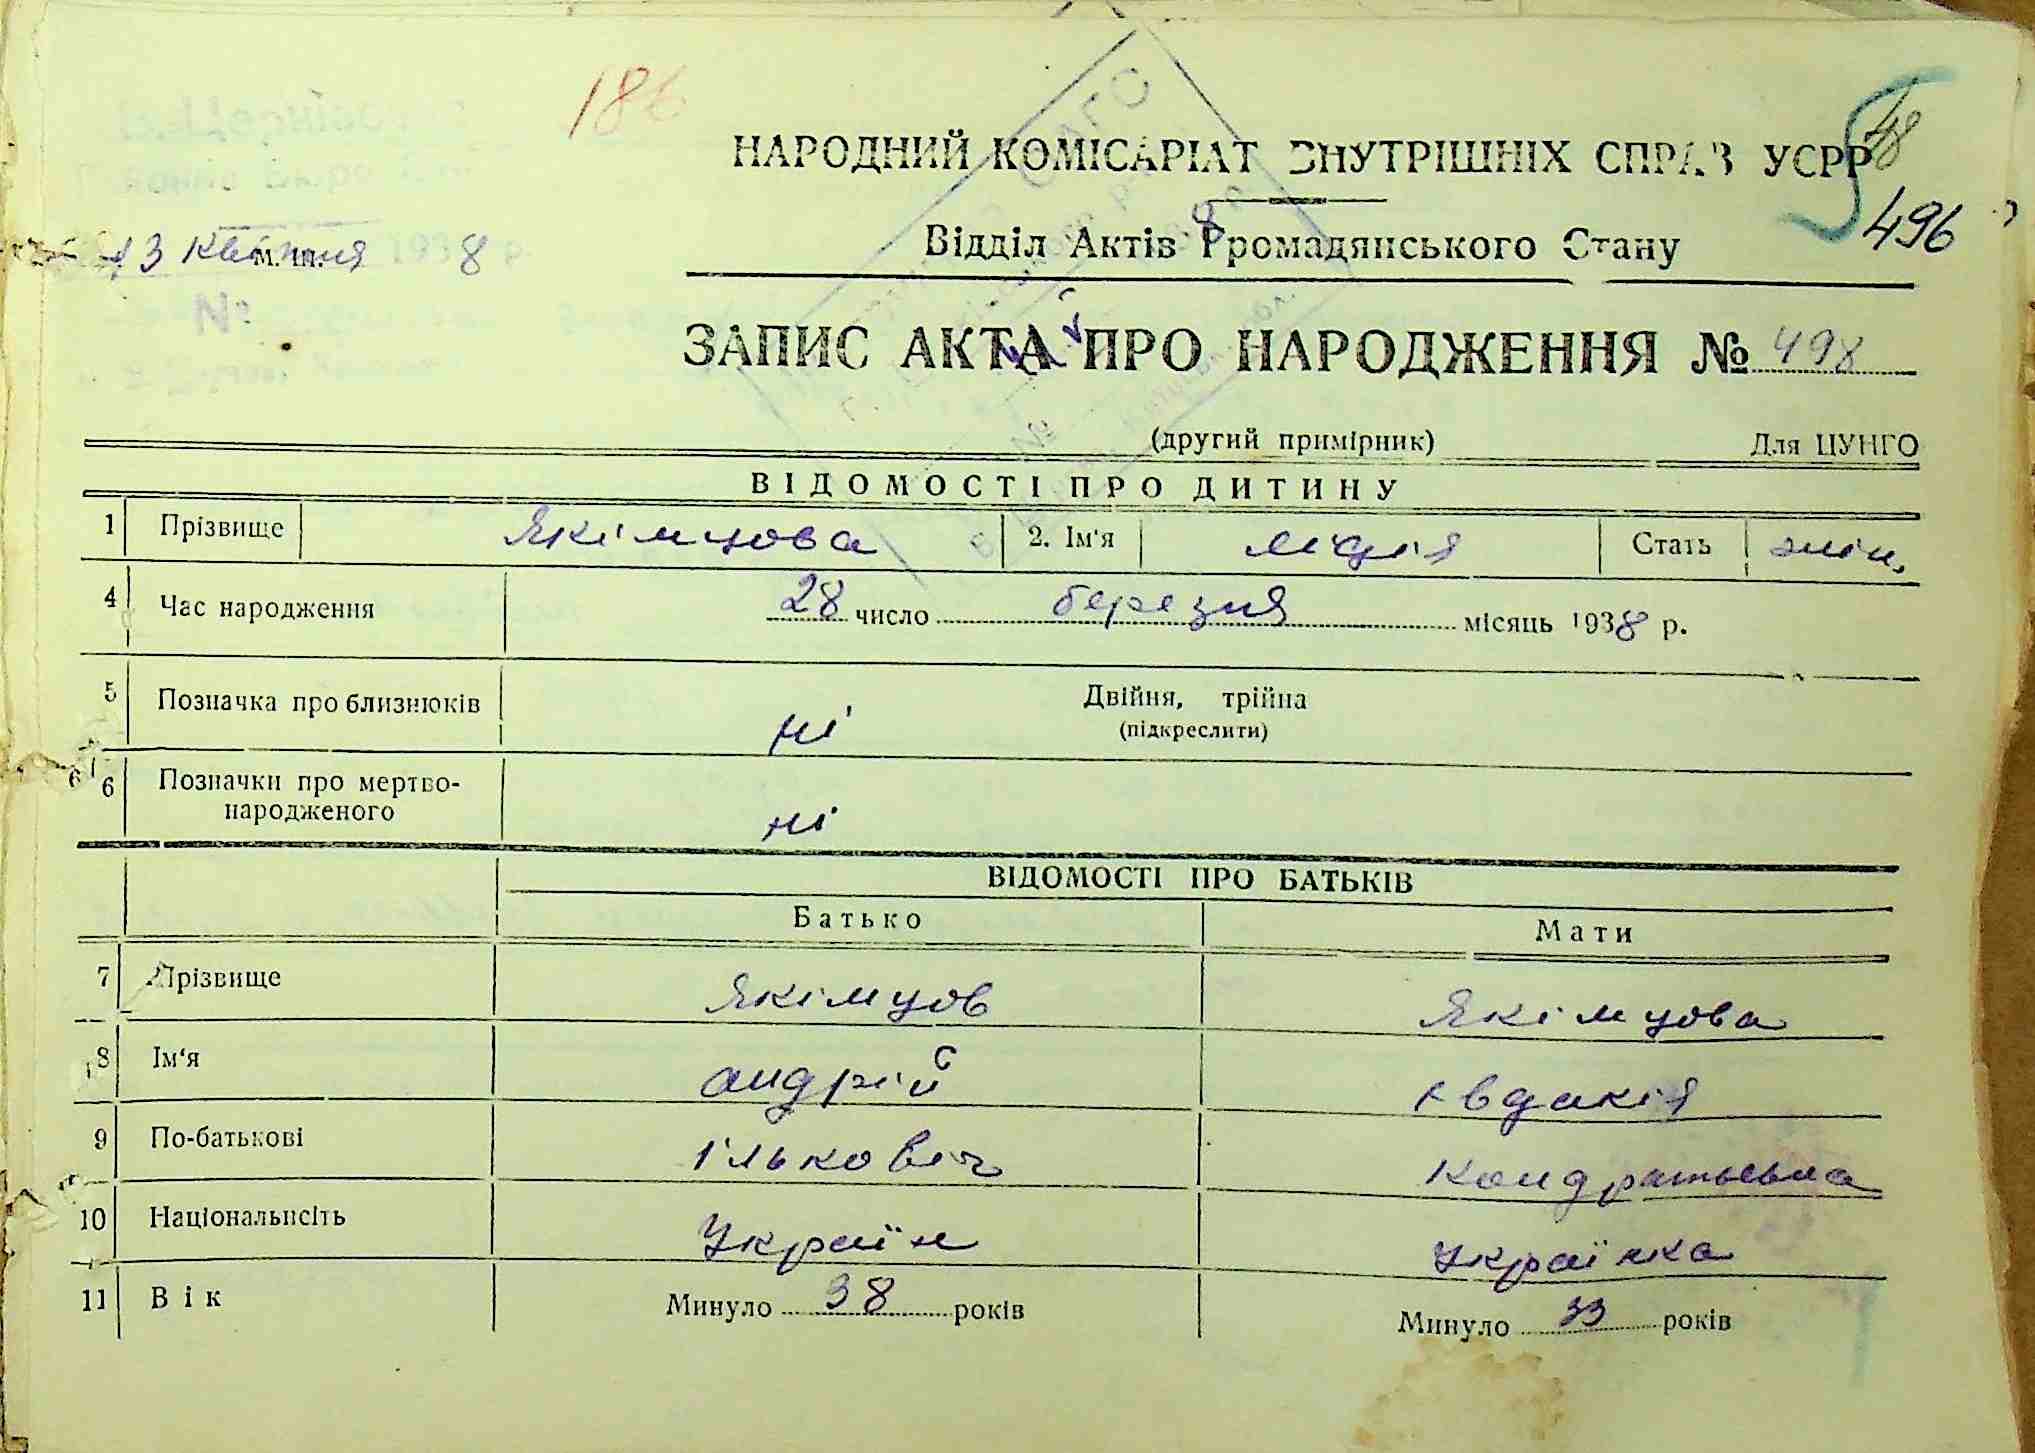 186
48
496
НАРОДНИЙ КОМІСАРІАТ ВНУТРІШНІХ СПРАВ УСРР
Відділ Актів Громадянського Стану
13 квітня 1938 р.
м. п.
№
ЗАПИС АКТА ПРО НАРОДЖЕННЯ № 498
(другий примірник) Для ЦУНГО
ВІДОМОСТІ ПРО ДИТИНУ
1 Прізвище Якімцова 2. Ім'я Лідія Стать жін.
4 Час народження 28 число березня місяць 1938 р.
5 Позначка про близнюків ні Двійня, трійна
(підкреслити)
6 Позначки про мертво-
народженого ні
ВІДОМОСТІ ПРО БАТЬКІВ
Батько Мати
7 Прізвище Якімцов Якімцова
8 Ім'я Андрій Євдакія
9 По-батьковіІлькович Кондратьевна
10 Національність Україн Українка
11 Вік Минуло 38 років Минуло 33 років